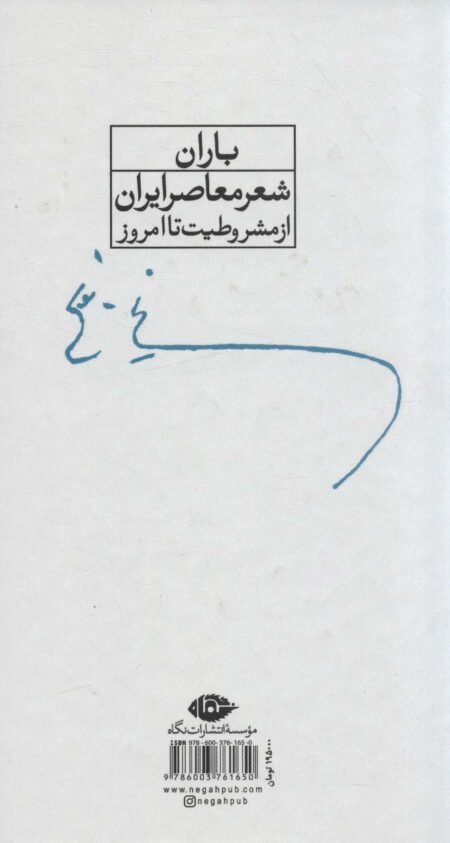 باران
شعر معاصر ایران
از مشروطیت تا امروز
مؤسسهٔ انتشارات نگاه
ISBN 978-600-376-165-0
9 786003 761650
۱۹۵۰۰۰ تومان
www.negahpub.com
negahpub